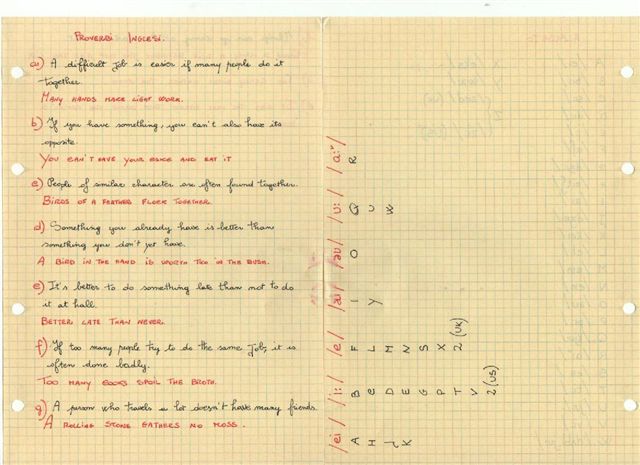 PROVERBI INGLESI.
a) A difficult job is easier if many people do it
together.
MANY HANDS MAKE LIGHT WORK.
b) If you have something, you can't also have its
opposite.
YOU CAN'T HAVE YOUR CAKE AND EAT IT
c) People of similar character are often found together.
BIRDS OF A FEATHER FLOCK TOGETHER.
d) Something you already have is better than
something you don't yet have.
A BIRD IN THE HAND IS WORTH TWO IN THE BUSH.
e) It's better to do something late than not to do
it at hall.
BETTER LATE THAN NEVER.
f) If too many people try to do the same job, it is
often done badly.
TOO MANY COOKS SPOIL THE BROTH.
g) A person who travels a lot doesn't have many friends.
A ROLLING STONE GATHERS NO MOSS.
/ei/ /i:/ /e/ /aɪ/ /əʊ/ /u:/ /a:ʳ/
A B F I O Q R
H C L Y U
J D M W
K E N
G S
P X
T Z (UK)
V
Z (US)